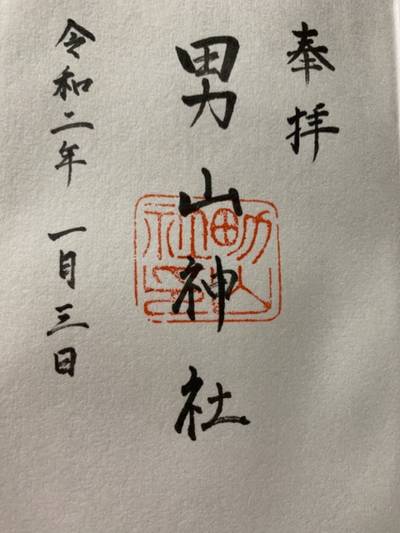 奉拝
男山神社
令和二年 一月三日